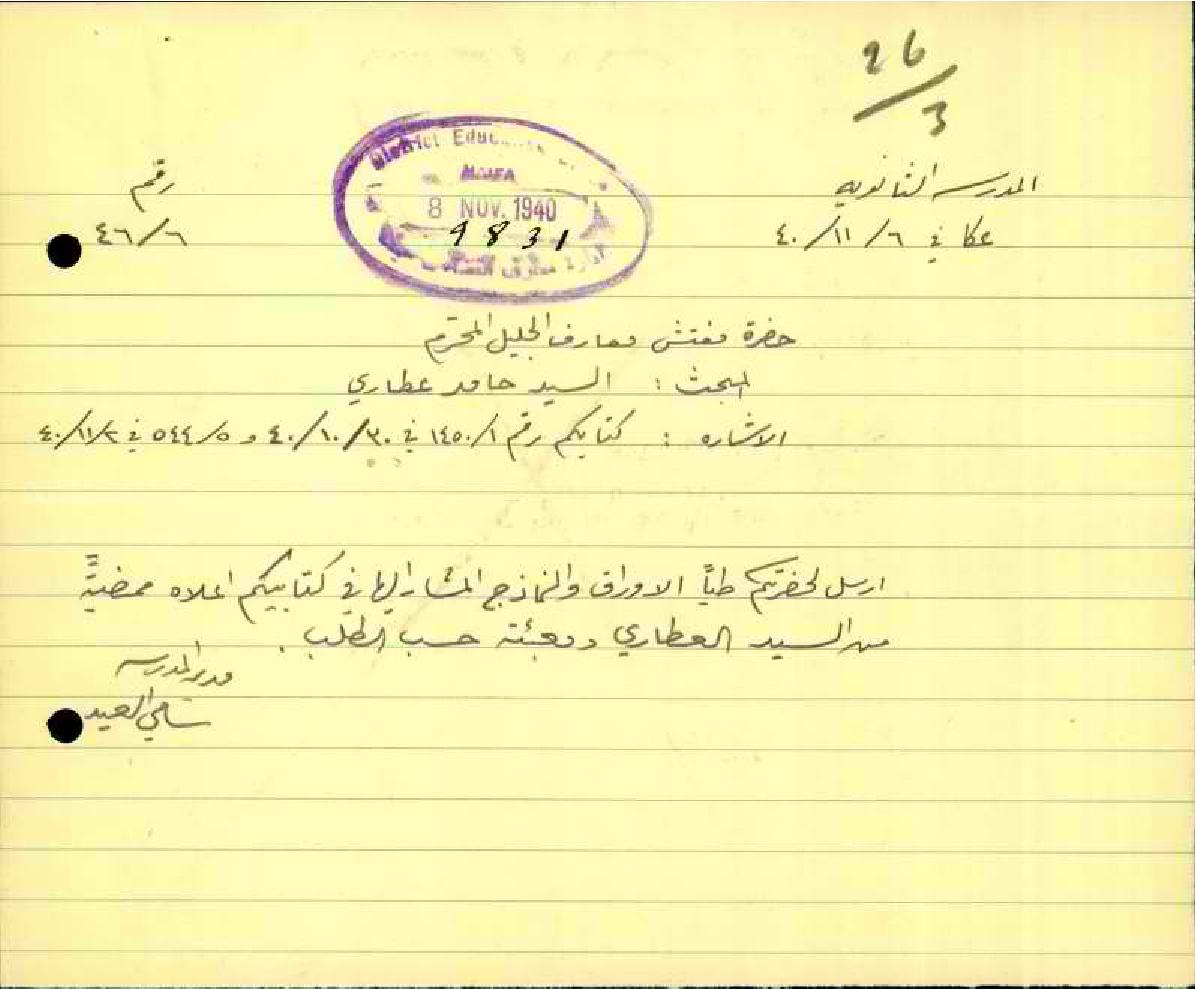 26/3
المدرسه الثانويه
رقم
عكا في ٦/ ١١/ ٤٠
٤٦/٦
District Educ
HAIFA
8 NOV. 1940
9831
ادارة معارف
حضرة مفتش معارف الجليل المحترم
المبحث : السيد حامد عطاري
الاشاره : كتابكم رقم ١٤٥٠/١ في ٤٠/١٠/٣٠ و ٥٤٤/٥ في ٤٠/١١/٢
ارسل لحضرتكم طياً الاوراق والنماذج المشار اليها في كتابيكم اعلاه ممضيةً
من السيد العطاري ومعبئة حسب الطلب .
مدير المدرسه
سامي العيد